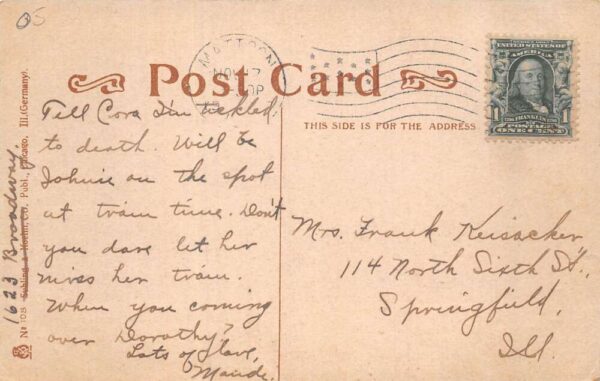 05
MATTOON
NOV 7
Post Card
THIS SIDE IS FOR THE ADDRESS
UNITED STATES OF
AMERICA
1 FRANKLIN 1
POSTAGE
ONE CENT
Tell Cora I'm tickled
to death. Will be
Johnie on the spot
at train time. Don't
you dare let her
miss her train.
When you coming
over Dorothy?
Lots of love,
Maude.
Mrs. Frank Keisacker,
114 North Sixth St.,
Springfield,
Ill.
1623 Broadway.
No 105 Co. Publ., Chicago, Ill. (Germany)